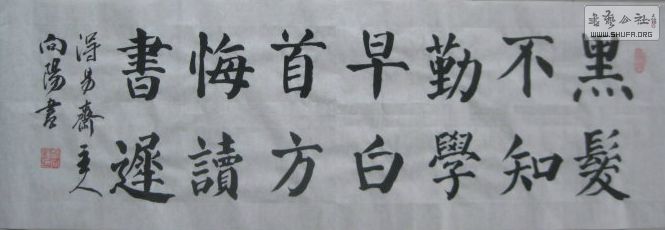 黑髮
不知
勤學
早白
首方
悔讀
書遲
得易齋主人
向陽書
書藝公社
WWW.SHUFA.ORG